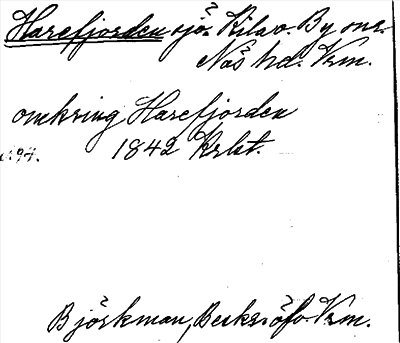 Harefjorden sjö. Kila o. By snr.
Näs hd. Vrm.
omkring Harefjorden
s. 94. 1842 Krbt.
Björkman, Beskr. öfv. Vrm.